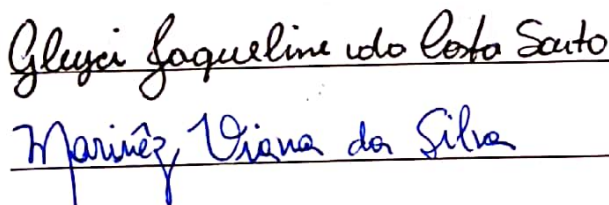 Gleyci Jaqueline da Costa Souto
Marinêz Viana da Silva